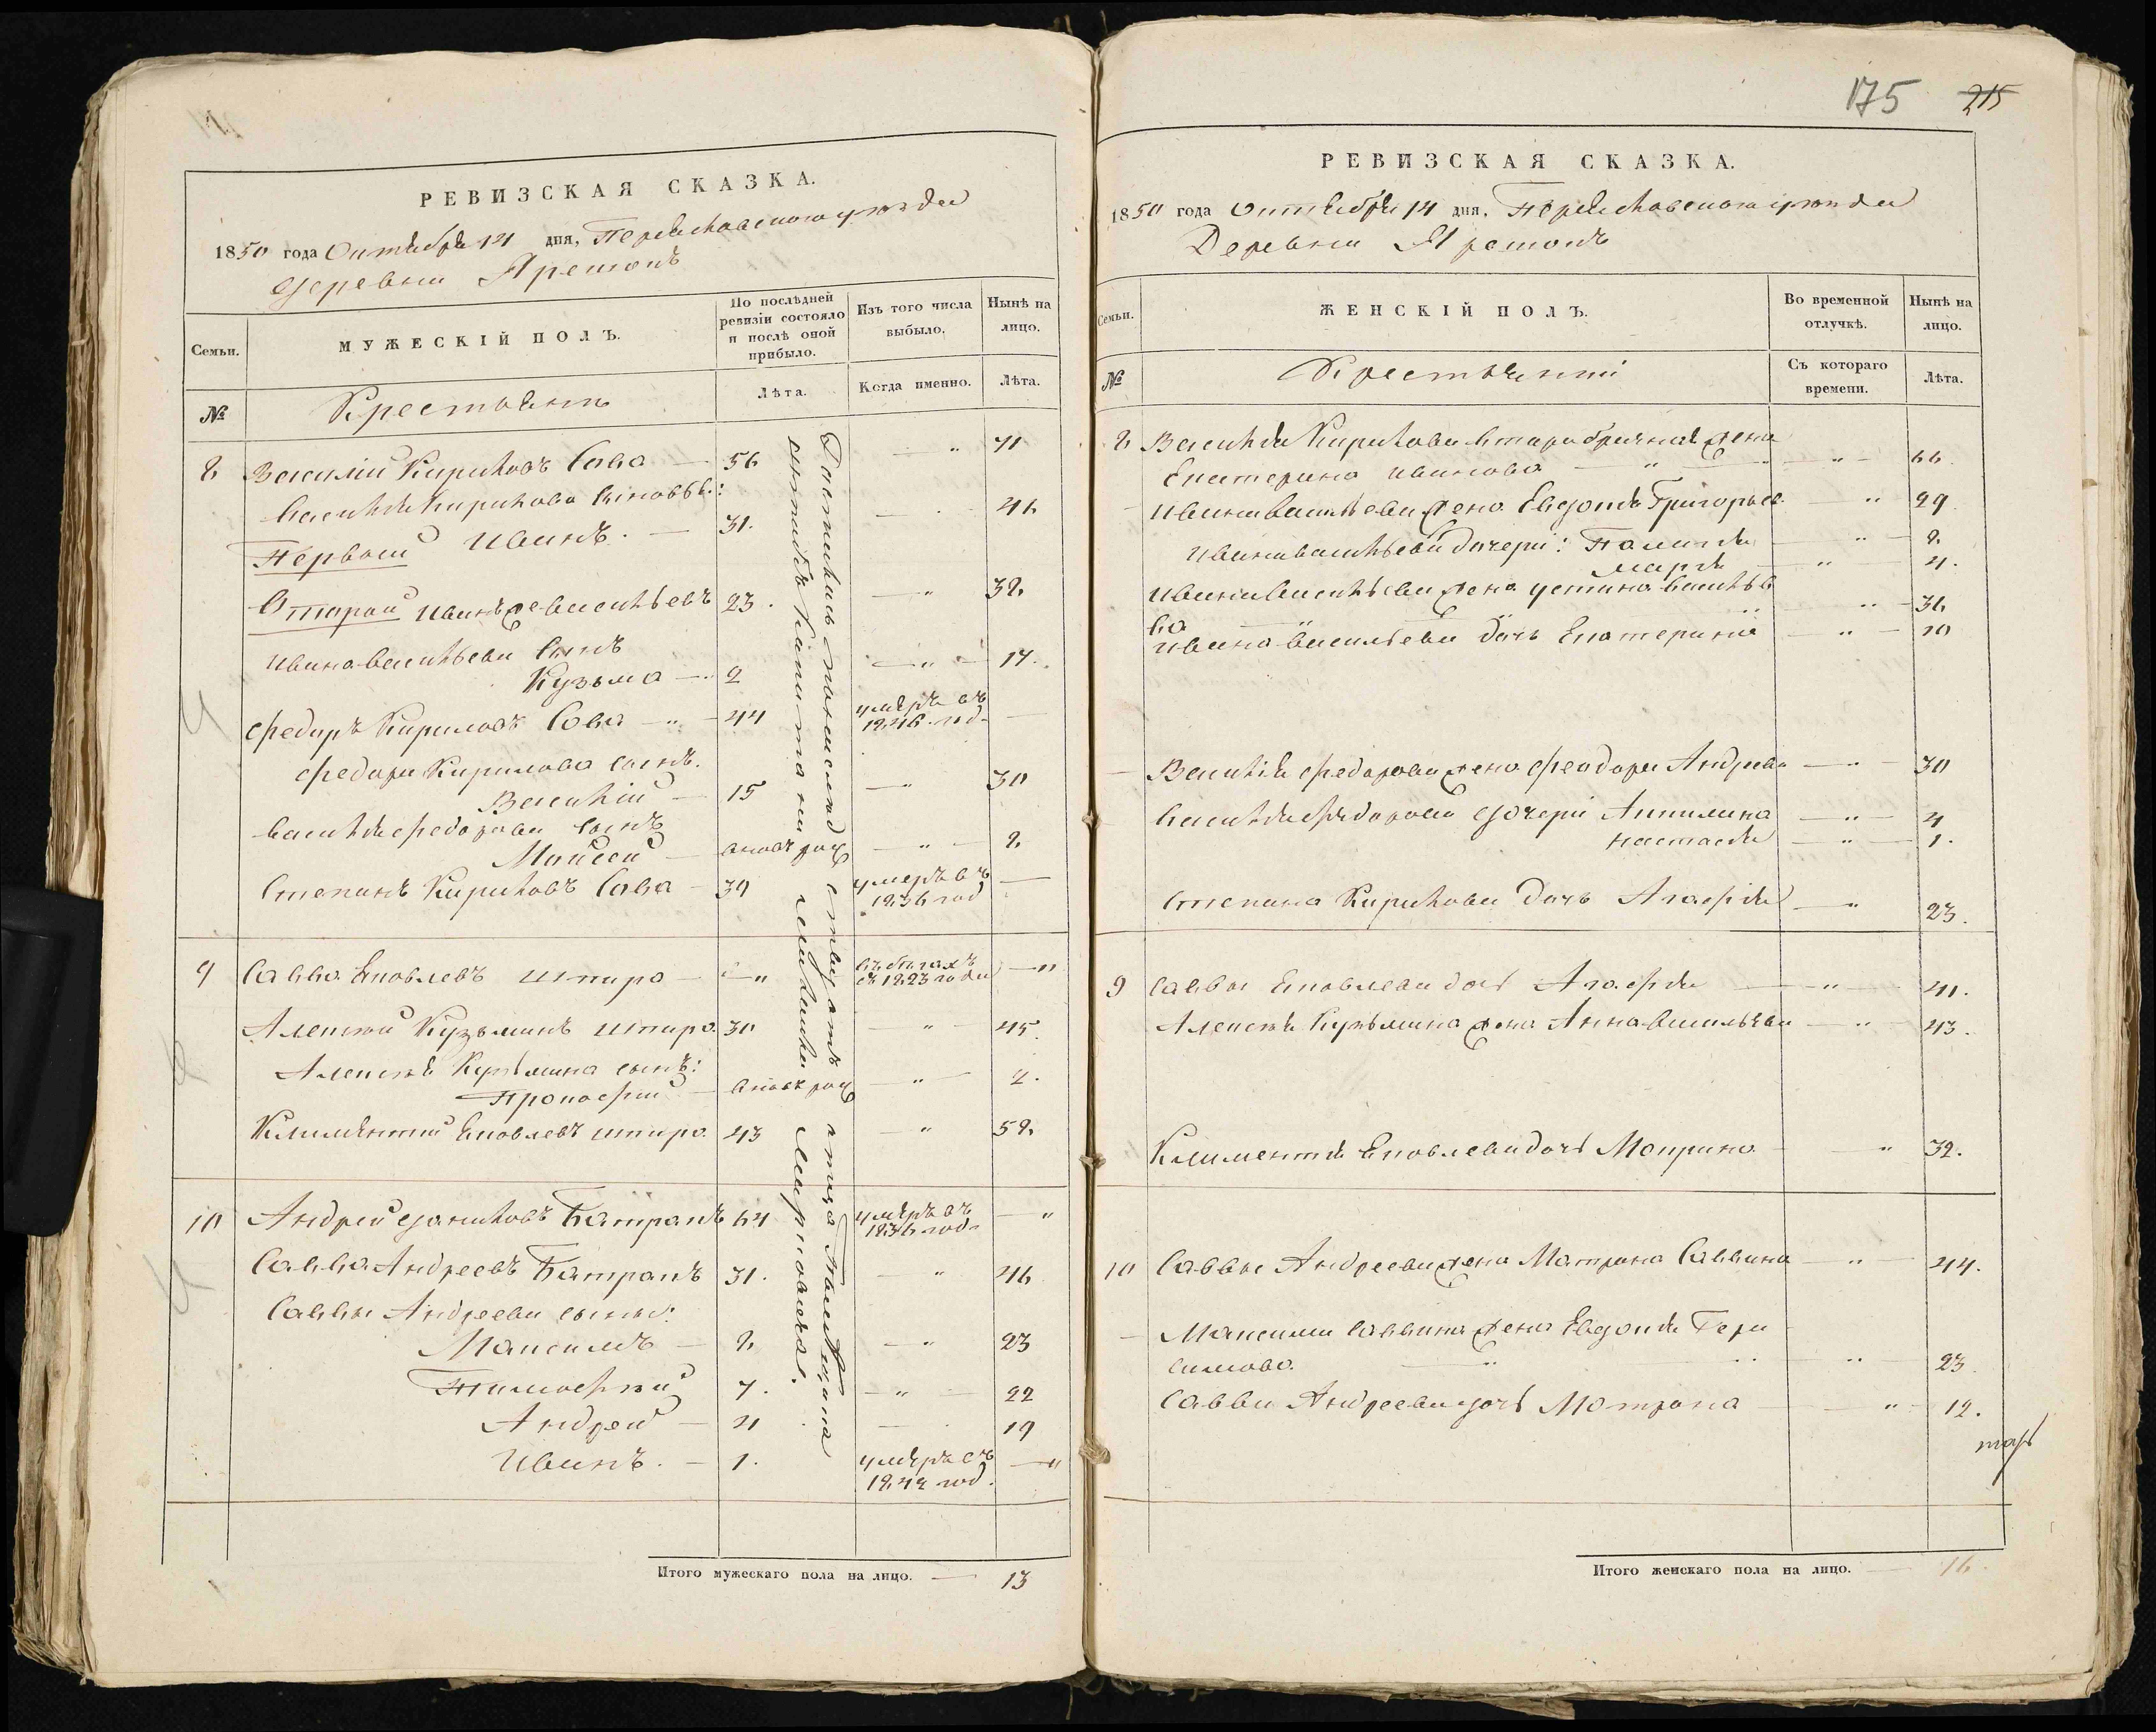 РЕВИЗСКАЯ СКАЗКА.
1850 года Октября 14 дня, Переяславскаго уѣзда
Деревни Ярешокъ
Семьи.
МУЖЕСКІЙ ПОЛЪ.
По послѣдней ревизіи состояло и послѣ оной прибыло.
Изъ того числа выбыло.
Нынѣ на лицо.
№
Крестьянъ
Лѣта.
Когда именно.
Лѣта.
8 Василій Кириловъ Сова — 56 — " 71
Василія Кирилова сыновья:
Первый Иванъ. — 31. — 46
Второй Иванъ же Васильевъ 23. — " 38
Ивана Васильева сынъ
Кузьма — 2 — " — 17.
Федоръ Кириловъ Сова — " — 44 умеръ въ 1846 год. —
Федора Кирилова сынъ.
Василій — 15 — " 30
Василія Федорова сынъ
Мойсей — вновь рож — " — 8
Степанъ Кириловъ Сова — 39 умеръ въ 1836 год —
9 Савва Яковлевъ Шпира — — " въ бѣгахъ съ 1823 года — "
Алексѣй Кузьминъ Шпира 30 — " — 45.
Алексѣя Кузьмина сынъ:
Прокофій — вновь рож — " — 2.
Климентій Яковлевъ Шпира. 43 — " 58
10 Андрей Даниловъ Батракъ 64 умеръ въ 1836 год. — "
Савва Андреевъ Батракъ 31. — " 46
Саввы Андреева сыны:
Максимъ — 8 — " 23
Тимофей 7. — " — 22
Андрей — 4 — 19
Иванъ. — 1. умеръ въ 1842 год. — "
Итого мужескаго пола на лицо. — 13
175 215
РЕВИЗСКАЯ СКАЗКА.
1850 года Октября 14 дня, Переяславскаго уѣзда
Деревни Ярешокъ
Семьи.
ЖЕНСКІЙ ПОЛЪ.
Во временной отлучкѣ.
Нынѣ на лицо.
№
Съ котораго времени.
Лѣта.
8 Василія Кирилова втораобрачная жена
Екатерина Иванова — " — " — 66.
Ивана Васильева жена Евдокія Григорьев. — " 29
Ивана Васильева дочери: — " — 8
Марія — " — 4.
Ивана Васильева жена Устина Василье
ва — " — " — " — 36
Ивана Васильева дочь Екатерина — " — 10
Василія Федорова жена Феодора Андреева — " — 30
Василія Федорова дочери Акилина — " — 4
Настасія — " — 1.
Степана Кирилова дочь Агафія — " 23.
9 Саввы Яковлева дочь Агафія — " — 41.
Алексѣя Кузьмина жена Анна Васильева — " — 43.
Климентія Яковлева дочь Мотрина — " 32.
10 Саввы Андреева жена Матрина Саввина — " — 44.
Максима Саввина жена Евдокія Гера
симова. — " — " — " — 23.
Саввы Андреева дочь Мотрона — " — 12.
Итого женскаго пола на лицо. — 16.